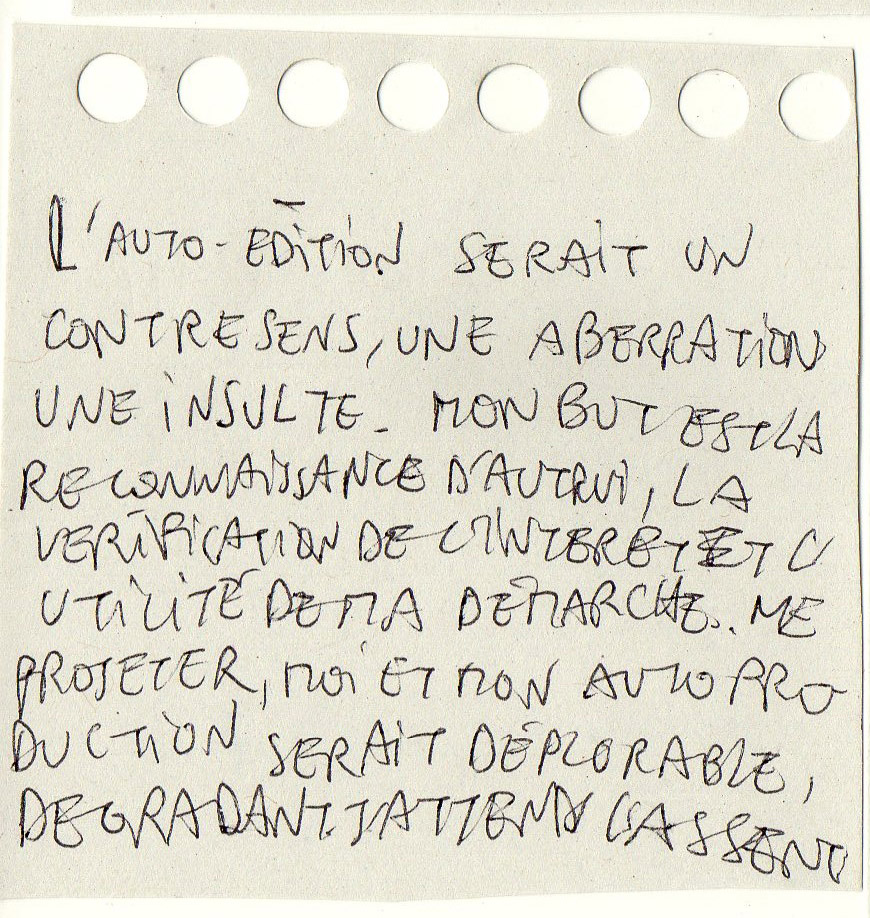 L'AUTO-EDITION SERAIT UN
CONTRESENS, UNE ABERRATION
UNE INSULTE. MON BUT EST LA
RECONNAISSANCE D'AUTRUI, LA
VERIFICATION DE L'INTERET ET L'
UTILITÉ DE MA DÉMARCHE.. ME
PROJETER, MOI ET MON AUTOPRO
DUCTION SERAIT DÉPLORABLE,
DEGRADANT. J'ATTENDS L'ASSENT